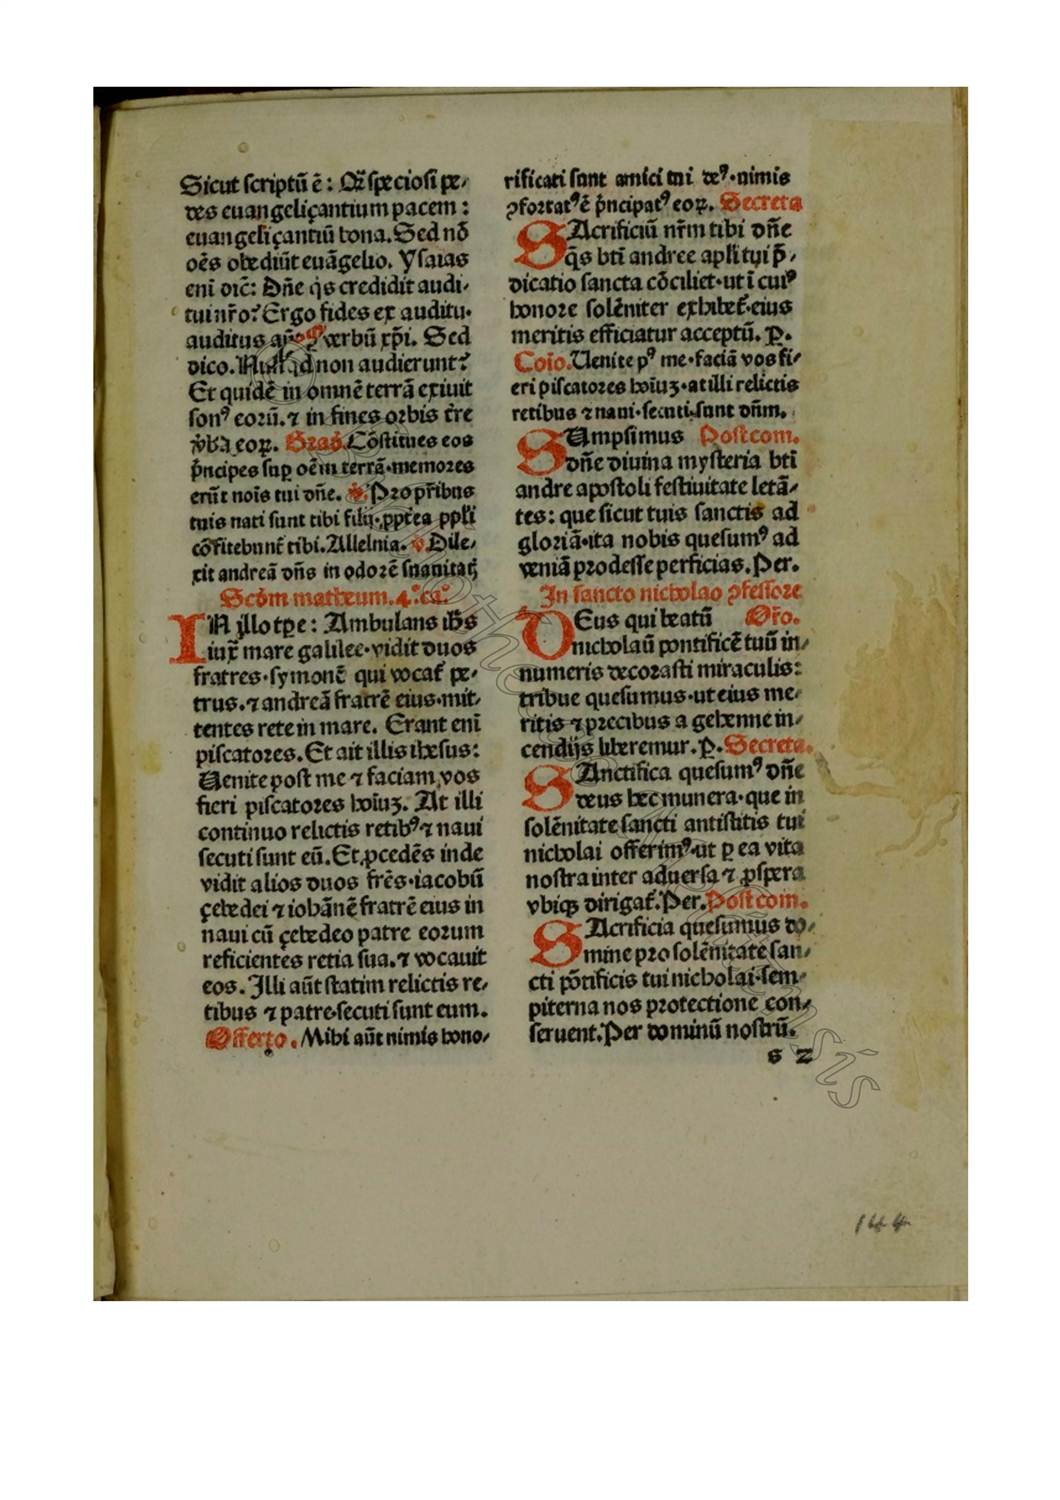 Sicut scriptū ē: Q̄ speciosi pe/
des euangeliçantium pacem:
euangeliçantiū bona. Sed nō
oēs obediūt euāgelio. Ysaias
eni oic̄: Dn̄e q̄s credidit audi/
tui nr̄o? Ergo fides ex auditu.
auditus verbū xp̄i. Sed
dico. non audierunt?
Et quidē in omnē terrā exiuit
sonꝰ eorū. ⁊ in fines orbis tr̄e
v̄ba eoꝝ. Grad̄. Cōstitues eos
p̄ncipes suꝑ oēm terrā. memores
erūt noīs tui dn̄e. ℣. Pro pr̄ibus
tuis nati sunt tibi filij. ꝓpt̄ea ppl̄i
cōfitebunt̄ tibi. Allelnia. ℣. Dile/
xit andreā dn̄s in odorē suauitatꝭ
Scd̄m matheum. 4.º ca.º
IN illo tꝑe: Ambulans ih̄s
iux̄ mare galilee. vidit duos
fratres. symonē qui vocat̄ pe/
trus. ⁊ andreā fratrē eius. mit/
tentes rete in mare. Erant eni̅
piscatores. Et ait illis ihesus:
Uenite post me ⁊ faciam vos
fieri piscatores hoīuꝫ. At illi
continuo relictis retibꝰ ⁊ naui
secuti sunt eū. Et ꝓcedēs inde
vidit alios duos fr̄es. iacobū
çebedei ⁊ iohānē fratrē eius in
naui cū çebedeo patre eorum
reficientes retia sua. ⁊ vocauit
eos. Illi aūt statim relictis re/
tibus ⁊ patre. secuti sunt eum.
Offerto. Mihi aūt nimis hono/
rificati sunt amici tui deꝰ. nimis
ꝯfortatꝰ ē p̄ncipatꝰ eoꝝ. Secreta
SAcrificiū nr̄m tibi dn̄e
q̄s bt̄i andree apl̄i tui p̄/
dicatio sancta cōciliet. ut ī cuiꝰ
honore solēniter exhibet̄. eius
meritis efficiatur acceptū. ꝑ.
Coīo. Uenite pꝰ me. faciā vos fi/
eri piscatores hoīuꝫ. at illi relictis
retibus ⁊ naui. secuti sunt dn̄m.
SUmpsimus Postcom.
dn̄e diuina mysteria bt̄i
andre apostoli festiuitate letā/
tes: que sicut tuis sanctis ad
gloriā. ita nobis quesumꝰ ad
veniā prodesse perficias. Per.
In sancto nicholao ꝯfessore
DEus qui beatū Or̄o.
nicholaū pontificē tuū in/
numeris decorasti miraculis:
tribue quesumus. ut eius me/
ritis ⁊ precibus a gehenne in/
cendijs liberemur. ꝑ. Secreta.
SAnctifica quesumꝰ dn̄e
deus hec munera. que in
solēnitate sancti antistitis tui
nicholai offerimꝰ. ut ꝑ ea vita
nostra inter aduersa ⁊ ꝓspera
vbiqꝫ dirigat̄. Per. Postcom.
SAcrificia quesumus do/
mine pro solēnitate san/
cti pōtificis tui nicholai. sem/
piterna nos protectione con/
seruent. Per dominū nostrū.
s 2
144